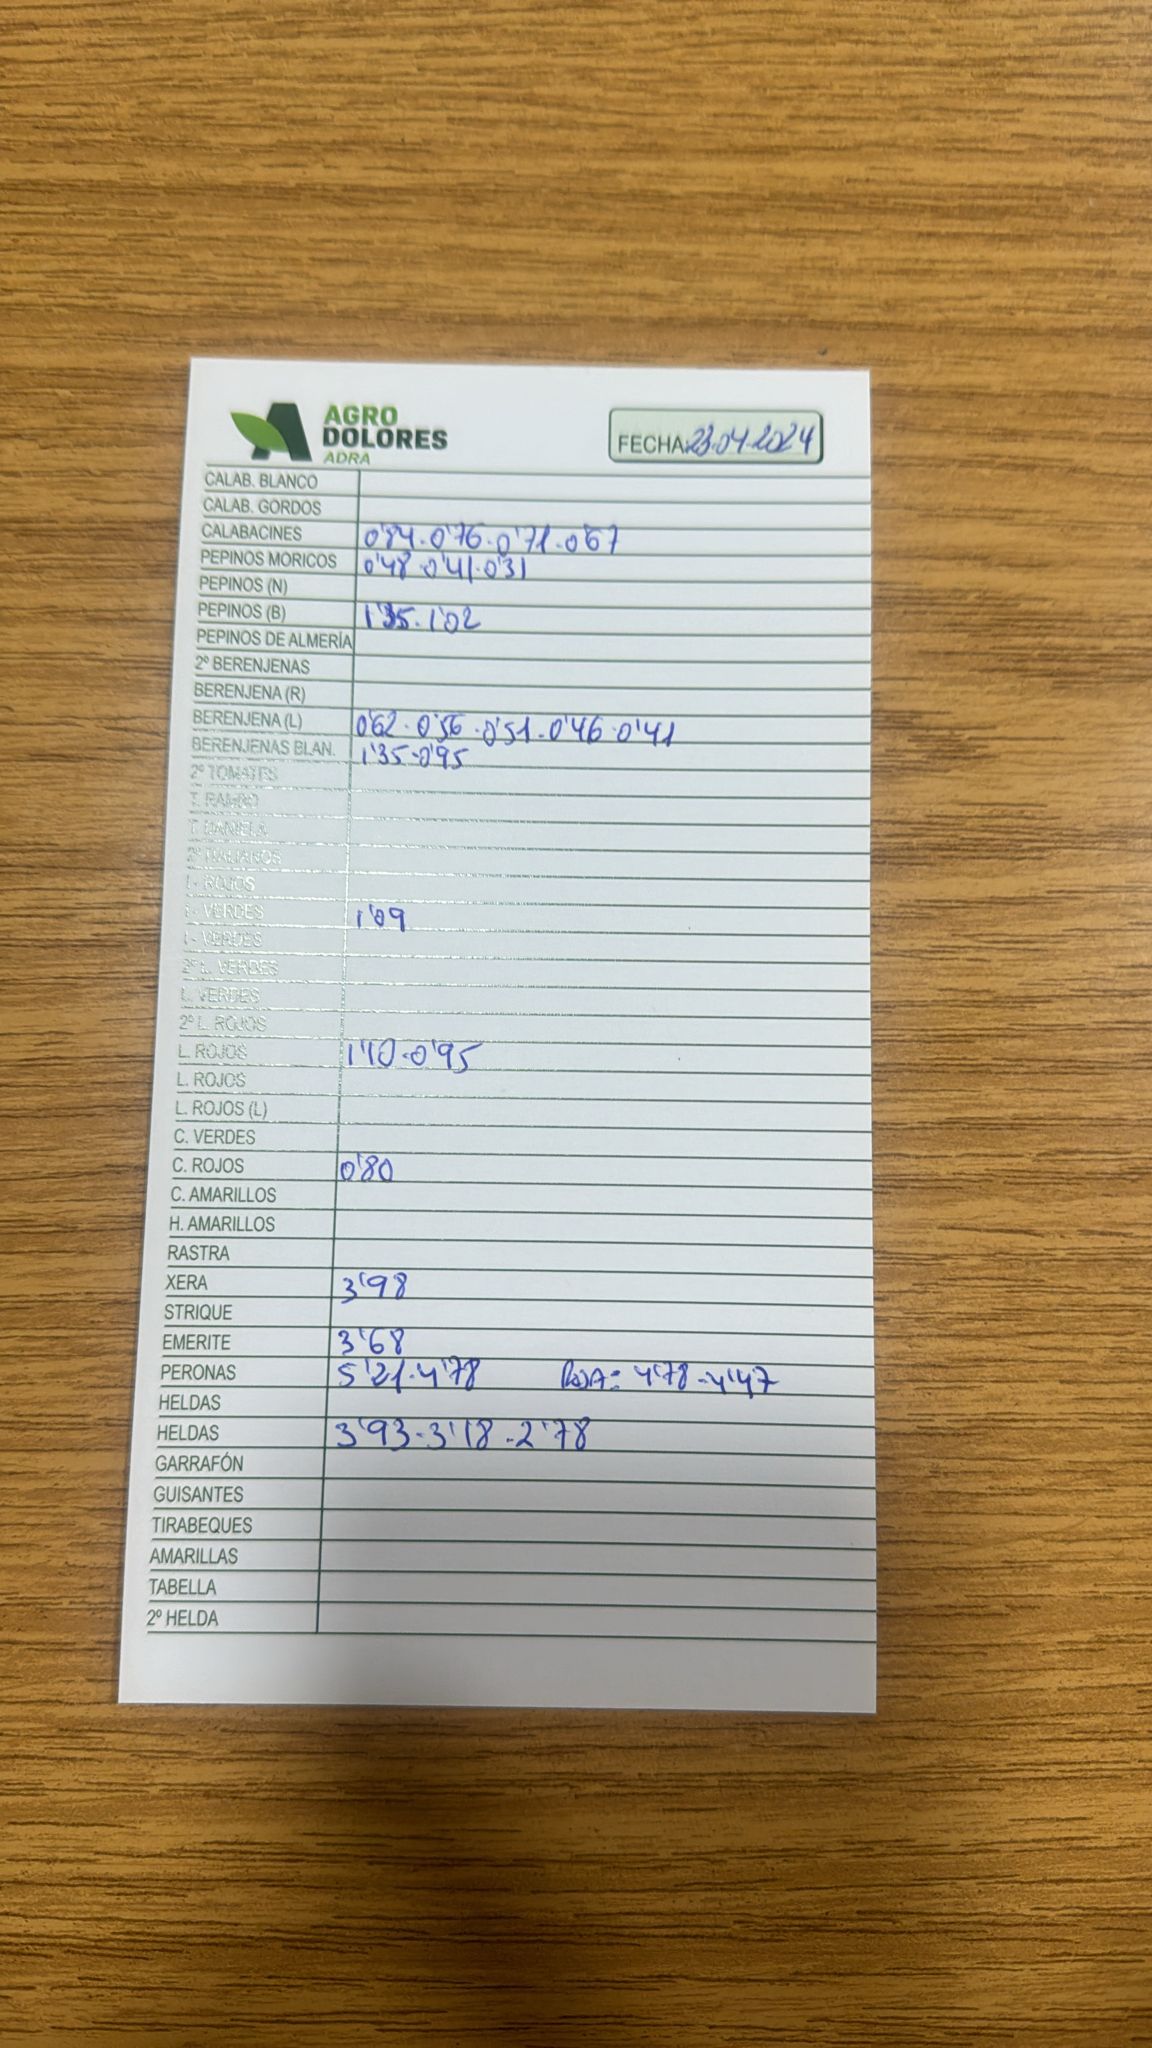 AGRO
DOLORES
ADRA
FECHA: 23-04-2024
CALAB. BLANCO
CALAB. GORDOS
CALABACINES 0'84-0'76-0'71-0'67
PEPINOS MORICOS 0'48-0'41-0'31
PEPINOS (N)
PEPINOS (B) 1'35-1'02
PEPINOS DE ALMERÍA
2º BERENJENAS
BERENJENA (R)
BERENJENA (L) 0'62-0'56-0'51-0'46-0'41
BERENJENAS BLAN. 1'35-0'95
2º TOMATES
T. RAMBO
T. DANIELA
2º ITALIANOS
I - ROJOS
I - VERDES 1'09
I - VERDES
2º L. VERDES
L. VERDES
2º L. ROJOS
L. ROJOS 1'10-0'95
L. ROJOS
L. ROJOS (L)
C. VERDES
C. ROJOS 0'80
C. AMARILLOS
H. AMARILLOS
RASTRA
XERA 3'98
STRIQUE
EMERITE 3'68
PERONAS 5'21-4'78 ROJA: 4'78-4'47
HELDAS
HELDAS 3'93-3'18-2'78
GARRAFÓN
GUISANTES
TIRABEQUES
AMARILLAS
TABELLA
2º HELDA